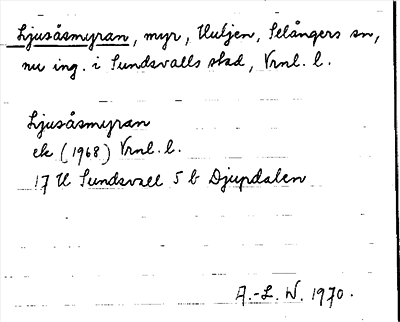 Ljusåsmyran, myr, Huljen, Selångers sn,
nu ing. i Sundsvalls stad, Vrnl. l.
Ljusåsmyran
ek (1968) Vrnl. l.
17 H Sundsvall 5 b Djupdalen
A.-L. W. 1970.